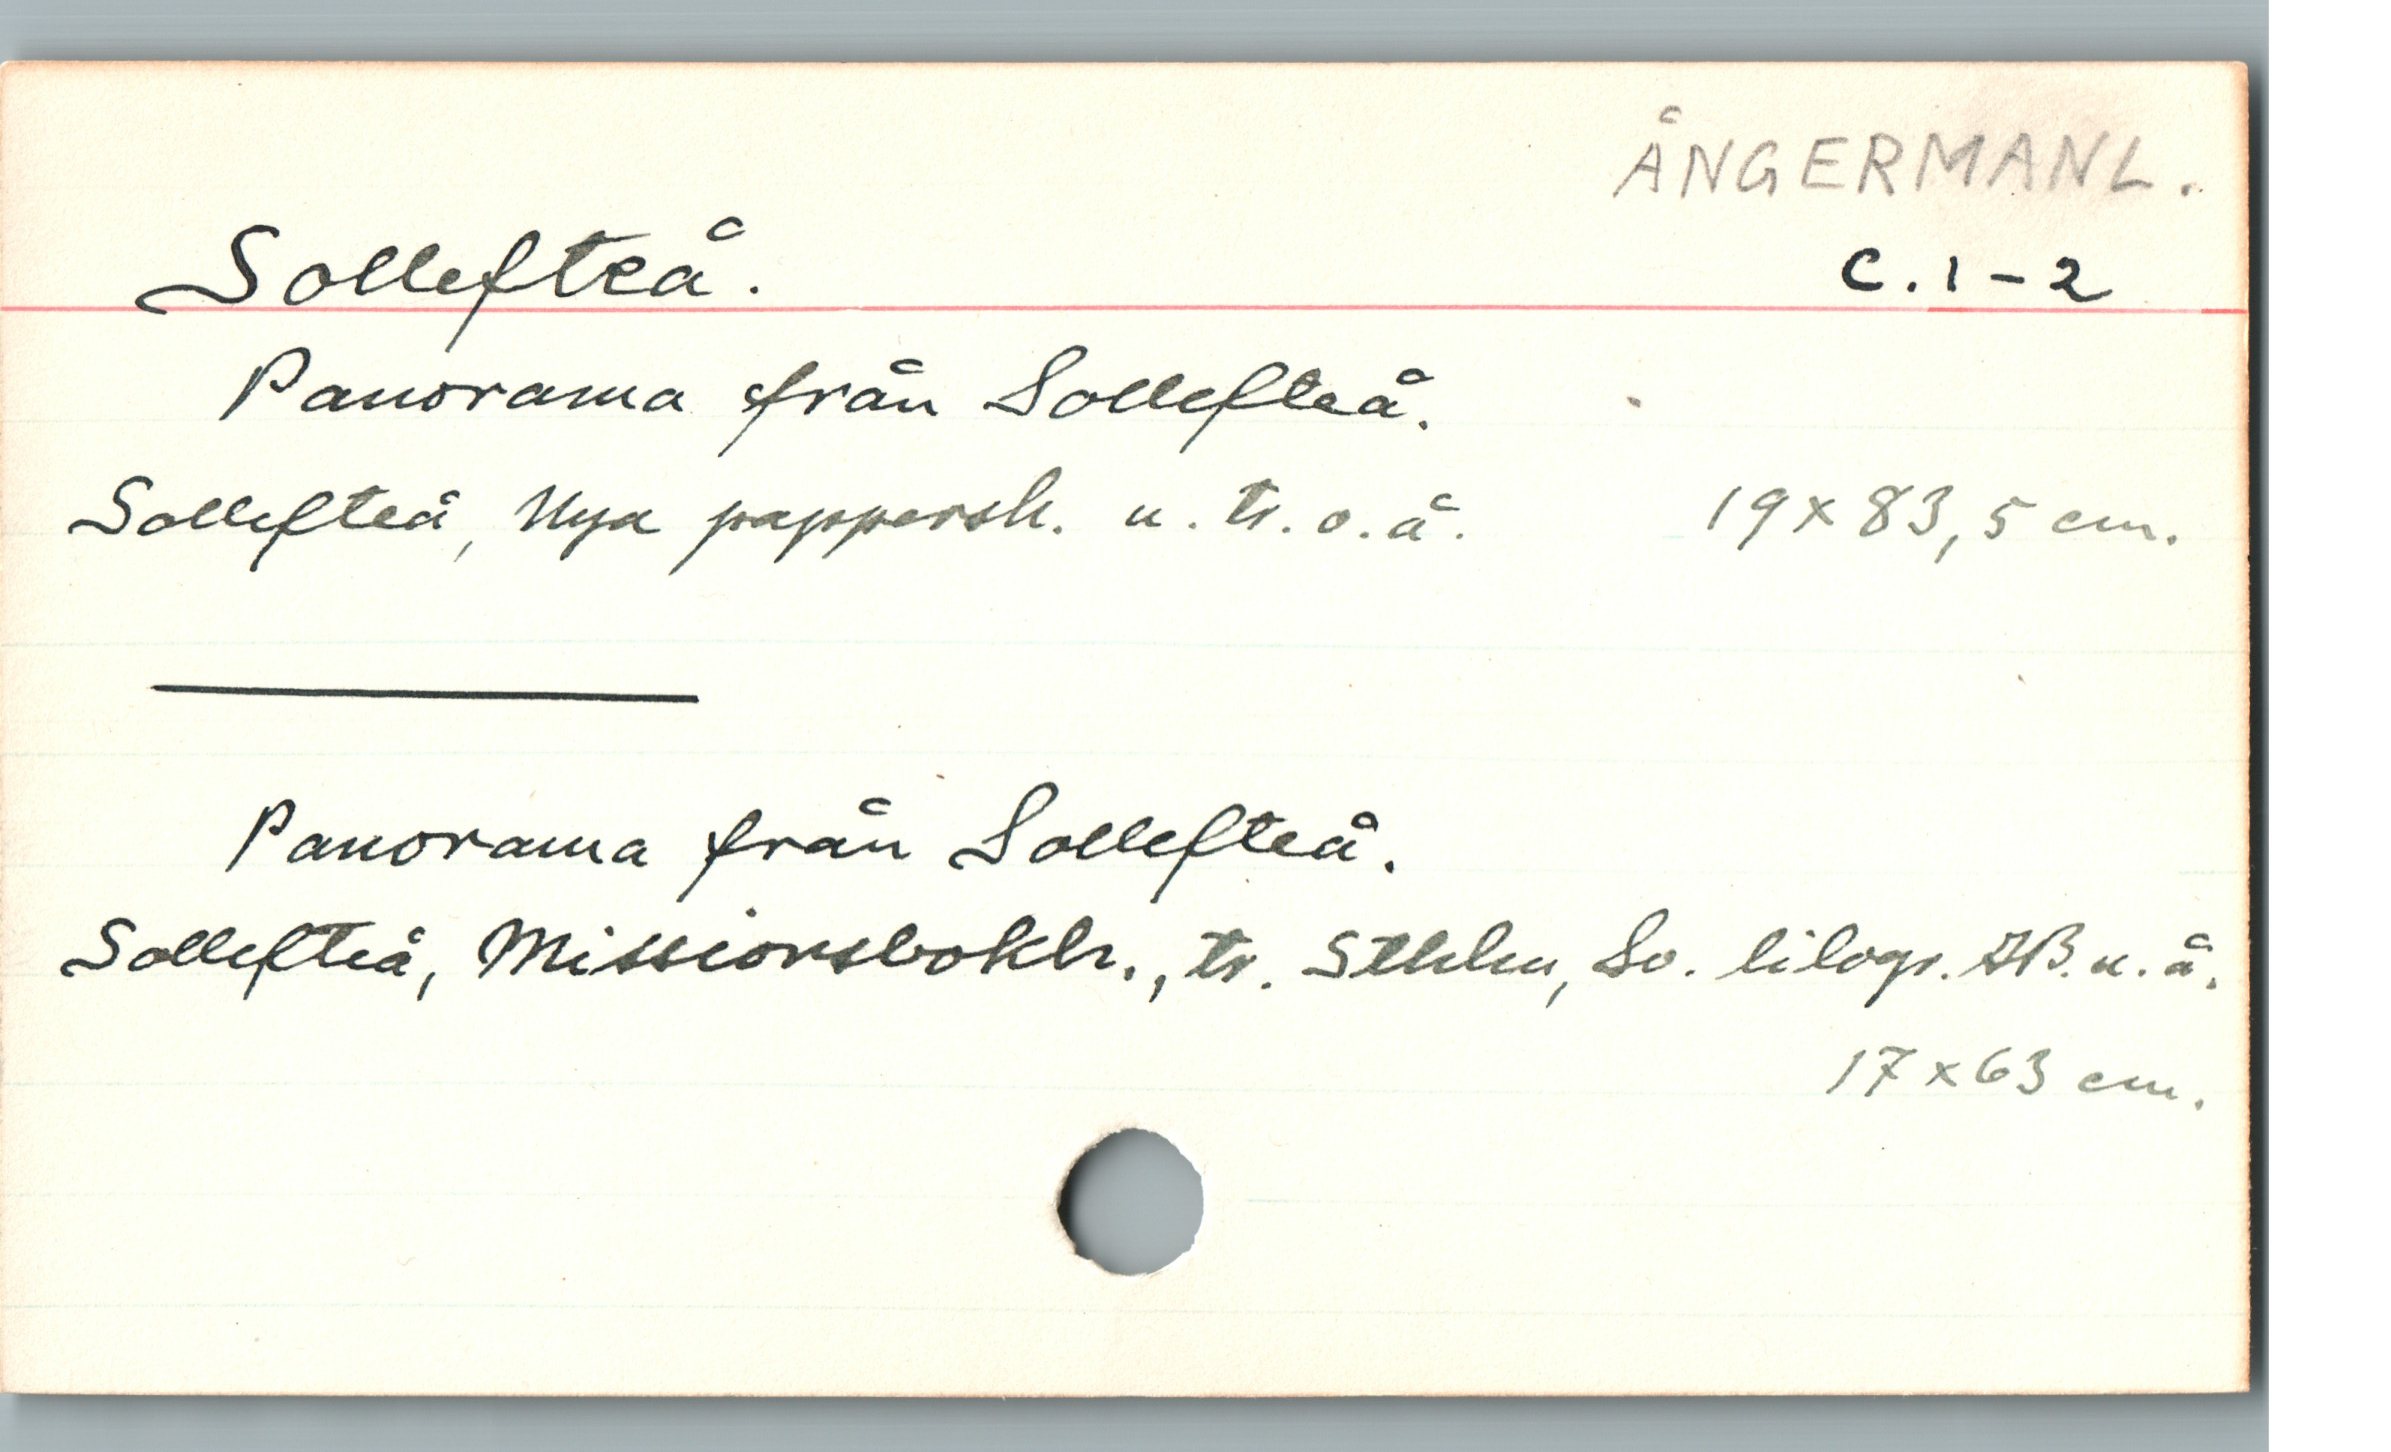 ÅNGERMANL.
Sollefteå. C. 1-2
Panorama från Sollefteå.
Sollefteå, Nya pappersh. u. tr. o. å. 19 x 83,5 cm.
Panorama från Sollefteå.
Sollefteå, Missionsbokh., tr. Sthlm, Sv. litogr. AB. u. å.
17 x 63 cm.